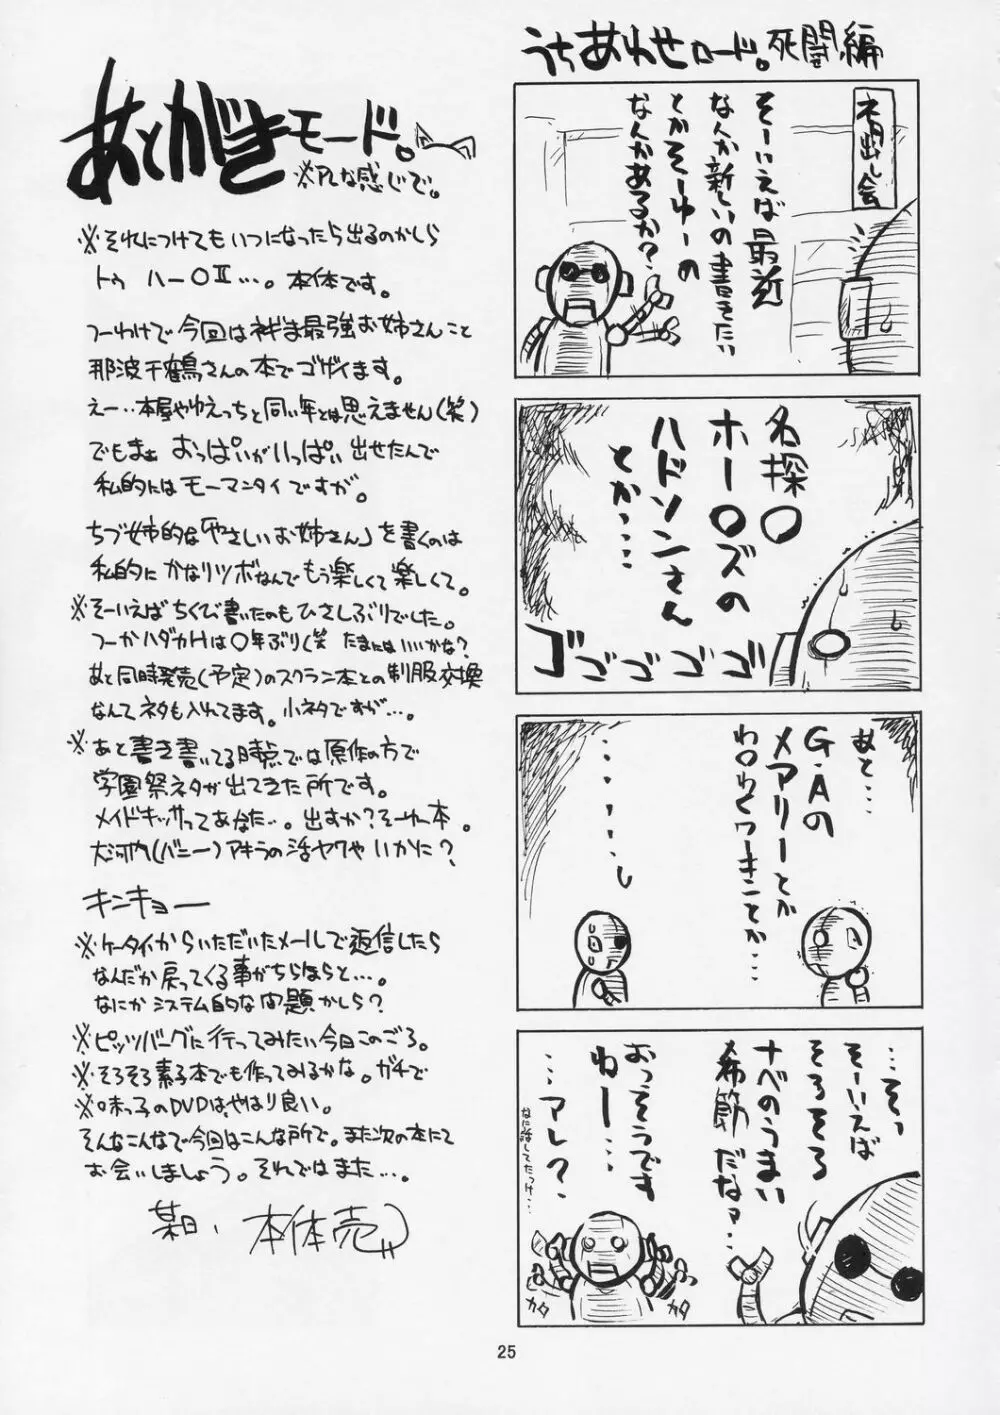 うちあわせロード。死闘編
ネタ出し会
そーいえば最近
なんか新しいの書きたい
とかそーゆーの
なんかあるか？
名探〇
ホー〇ズの
ハドソンさん
とか‥‥
ゴゴゴゴゴ
あと‥‥
G・Aの
メアリーとか
わ〇わくワーキンとか‥‥
‥‥そっ
そーいえば
そろそろ
ナベのうまい
季節だなァ‥
おっそうです
ねー‥‥
‥‥アレ？
なに話してたっけ‥‥
カタ
カタ
あとがきモード。
※アレな感じで。
※それにつけてもいつになったら出るのかしら
トゥ ハー〇Ⅱ‥‥。本体です。
つーわけで今回はネギま最強お姉さんこと
那波千鶴さんの本でゴザイます。
えー‥本屋やゆえっちと同い年とは思えません(笑)
でもまぁ おっぱいがいっぱい出せたんで
私的にはモーマンタイですが。
ちづ姉的な「やさしいお姉さん」を書くのは
私的にかなりツボなんでもう楽しくて楽しくて。
※そーいえばちくび書いたのもひさしぶりでした。
つーかハダカHは〇年ぶり(笑 たまにはいいかな？
あと同時発売(予定)のスクラン本との制服交換
なんてネタも入れてます。小ネタですが‥‥。
※あと書き書いてる時点では原作の方で
学園祭ネタが出てきた所です。
メイドキッサってあなた‥。出すか？そーゆー本。
大河内(バニー)アキラの活ヤクやいかに？
キンキョー
※ケータイからいただいたメールで返信したら
なんだか戻ってくる事がちらほらと‥‥。
なにかシステム的な問題かしら？
※ピッツバーグに行ってみたい今日このごろ。
※そろそろ素子本でも作ってみるかな。ガチで
※味っ子のDVDは、やはり良い。
そんなこんなで今回はこんな所で。また次の本にて
お会いしましょう。それではまた‥‥。
某日、本体売
25